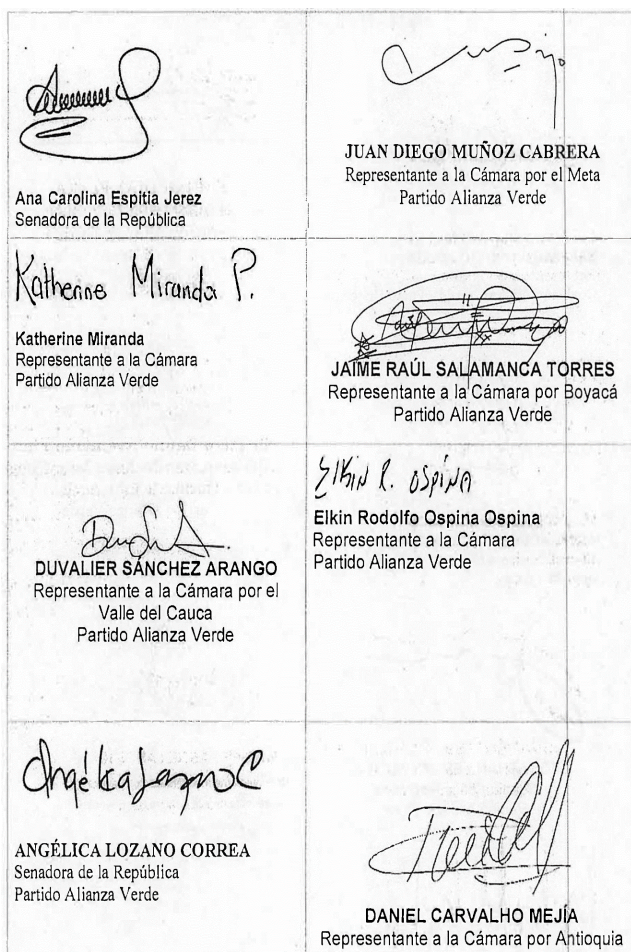 Ana Carolina Espitia Jerez
Senadora de la República
JUAN DIEGO MUÑOZ CABRERA
Representante a la Cámara por el Meta
Partido Alianza Verde
Katherine Miranda P.
Katherine Miranda
Representante a la Cámara
Partido Alianza Verde
JAIME RAÚL SALAMANCA TORRES
Representante a la Cámara por Boyacá
Partido Alianza Verde
DUVALIER SÁNCHEZ ARANGO
Representante a la Cámara por el
Valle del Cauca
Partido Alianza Verde
Elkin R. Ospina
Elkin Rodolfo Ospina Ospina
Representante a la Cámara
Partido Alianza Verde
Angélica Lozano C
ANGÉLICA LOZANO CORREA
Senadora de la República
Partido Alianza Verde
DANIEL CARVALHO MEJÍA
Representante a la Cámara por Antioquia